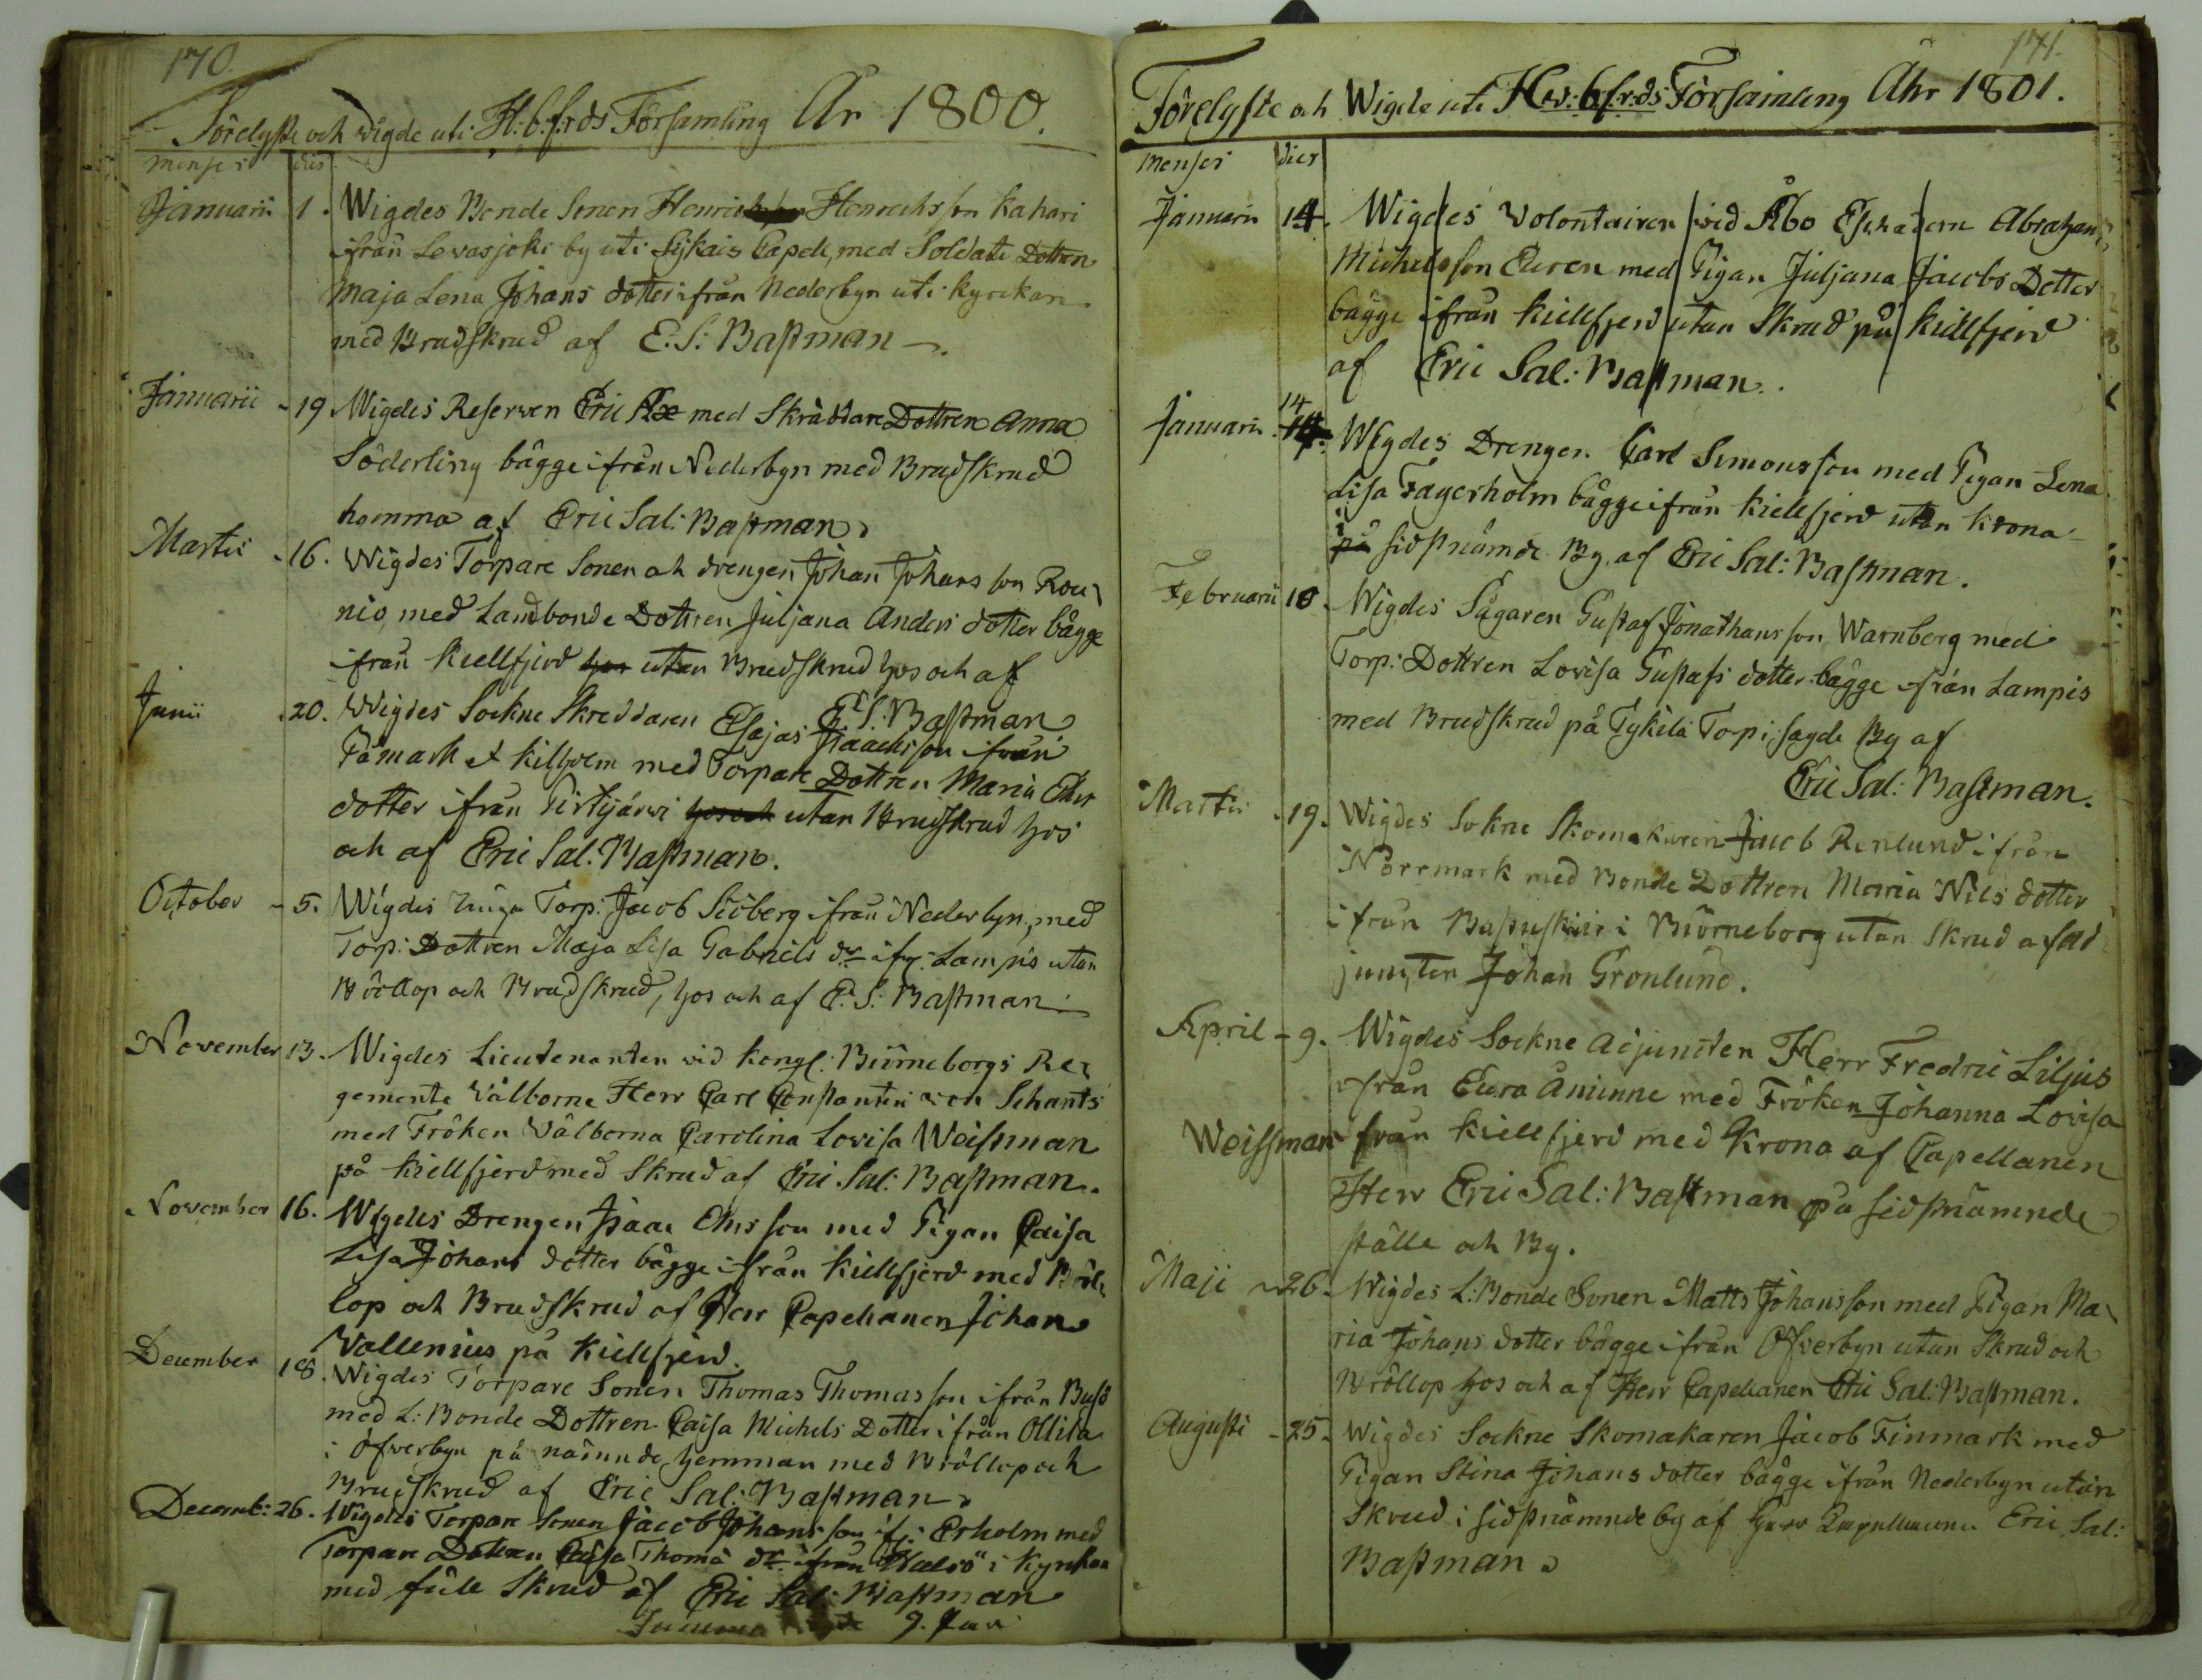 170.
Förelyste och wigde uti H:b.f:rds Församling År 1800.
menses dies
Januarii 1. Wigdes Bonde Sonen Henrich Henrichsson Kahari
ifrån Levasjoki by uti Sijkais Capell, med Soldate Dottren
Maja Lena Johans dotter ifrån Nederbyn uti Kyrckan
med Brudskrud af E. S: Bastman
Januarii 19 Wigdes Reserven Eric Ax med Skräddare Dottren Anna
Söderling bägge ifrån Nederbyn med Brudskrud
hemma af Eric Sal: Bastman
Martii 16. Wigdes Torpare Sonen och drengen Johan Johans son Rou
nio, med Landbonde Dottren Juljana Anders dotter bägge
ifrån Kiellfjerd hos utan Brudskrud hos och af
E. S: Bastman
Junii 20. Wigdes Sockne Skreddaren Esajas Isaachsson ifrån
Påmark et Killholm med Torpare Dottren Maria Ehrs
dotter ifrån Pirttijärvi hos och utan Brudskrud hos
och af Eric Sal. Bastman.
October 5. Wigdes unga Torp: Jacob Siöberg ifrån Nederbyn, med
Torp: Dottren Maja Lisa Gabriels dr ifr: Lampis utan
Bröllop och Brudskrud, hos och af E. S: Bastman
November 13. Wigdes Lieutenanten vid Kongl: Biörneborgs Re
gemente Välborne Herr Carl Constantin von Schants
med Fröken Välborna Carolina Lovisa Weissman
på Kiellfjerd med Skrud af Eric Sal: Bastman.
November 16. Wigdes Drengen Isaac Ehrsson med Pigan Caisa
Lisa Johans dotter bägge ifrån Kiellfjerd med Bröl
lop och Brudskrud af Herr Capellanen Johan
Wallenius på Kiellfjerd.
December 18. Wigdes Torpare Sonen Thomas Thomasson ifrån
med L: Bonde Dottren Caisa Michels Dotter ifrån Ollila
i Öfverbyn på nämnde hemman med Bröllop och
Brudskrud af Eric Sal: Bastman
Decemb: 26. Wigdes Torpare Sonen Jacob Johansson ifr: Erholm med
Torpare Dottren Caisa Thomæ dr ifrån i Kyrkan
med full Skrud af Eric Sal: Bastman
Summa 9. Par
171.
Förelyste och Wigde uti Hv:bf:rds Församling Åhr 1801.
menses dies
Januarii 14. Wigdes Volontairen vid Åbo Eschadern Abraham
Michelsson Euren med Pigan Juljana Jacobs Dotter
bägge ifrån Kiellfjerd utan Skrud på Kiellfjerd
af Eric Sal: Bastman.
14
Januarii 14. Wigdes Drengen Carl Simonsson med Pigan Lena
Lisa Fagerholm bägge ifrån Kiellfjerd utan Krona
i på sidstnämde By. af Eric Sal: Bastman.
Februarii 10. Wigdes Sågaren Gustaf Jonathansson Warnberg med
Torp: Dottren Lovisa Gustafs dotter bägge ifrån Lampis
med Brudskrud på Tykilä Torp i sagde By af
Eric Sal: Bastman.
Martii 19. Wigdes Sokne Skomakaren Jacob Renlund ifrån
Norrmark med Bonde Dottren Maria Nils dotter
ifrån i Biörneborg utan Skrud af Ad
juncten Johan Gronlund.
April 9. Wigdes Sockne Adjuncten Herr Fredric Liljus
ifrån Eura Åminne med Fröken Johanna Lovisa
Weissman från Kiellfjerd med Krona af Capellanen
Herr Eric Sal: Bastman på sidstnämnde
ställe och By.
Maji 26. Wigdes L: Bonde Sonen Matts Johansson med Pigan Ma
ria Johans dotter bägge ifrån Öfverbyn utan Skrud och
Bröllop hos och af Herr Capellanen Eric Sal: Bastman.
Augusti 25. Wigdes Sockne Skomakaren Jacob Finmark med
Pigan Stina Johans dotter bägge ifrån Nederbyn utan
Skrud i sidstnämnde by af Herr Capellanen Eric Sal:
Bastman